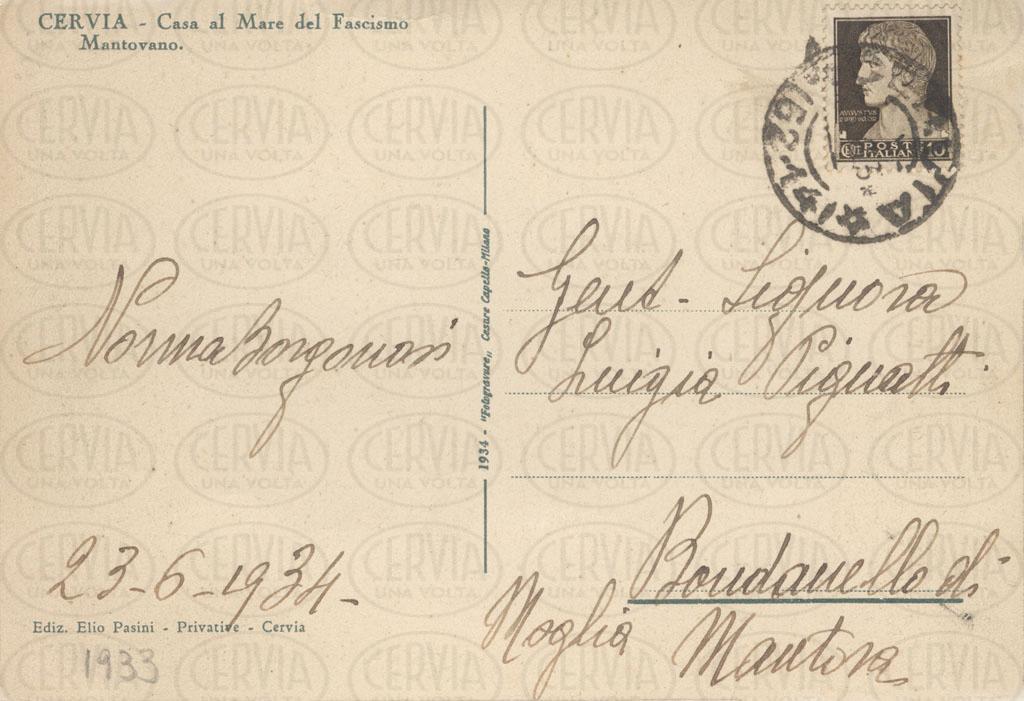 CERVIA - Casa al Mare del Fascismo
Mantovano.
AVGVSTVS
CENT. POST ITALIAN 10
Norma Borgonovi
23-6-1934-
Ediz. Elio Pasini - Privative - Cervia
1933
1934 - "Fotogravure" Cesare Capello-Milano
Gent- Signora
Luigia Pignatti
Bondanello di
Moglia Mantova
CERVIA
UNA VOLTA